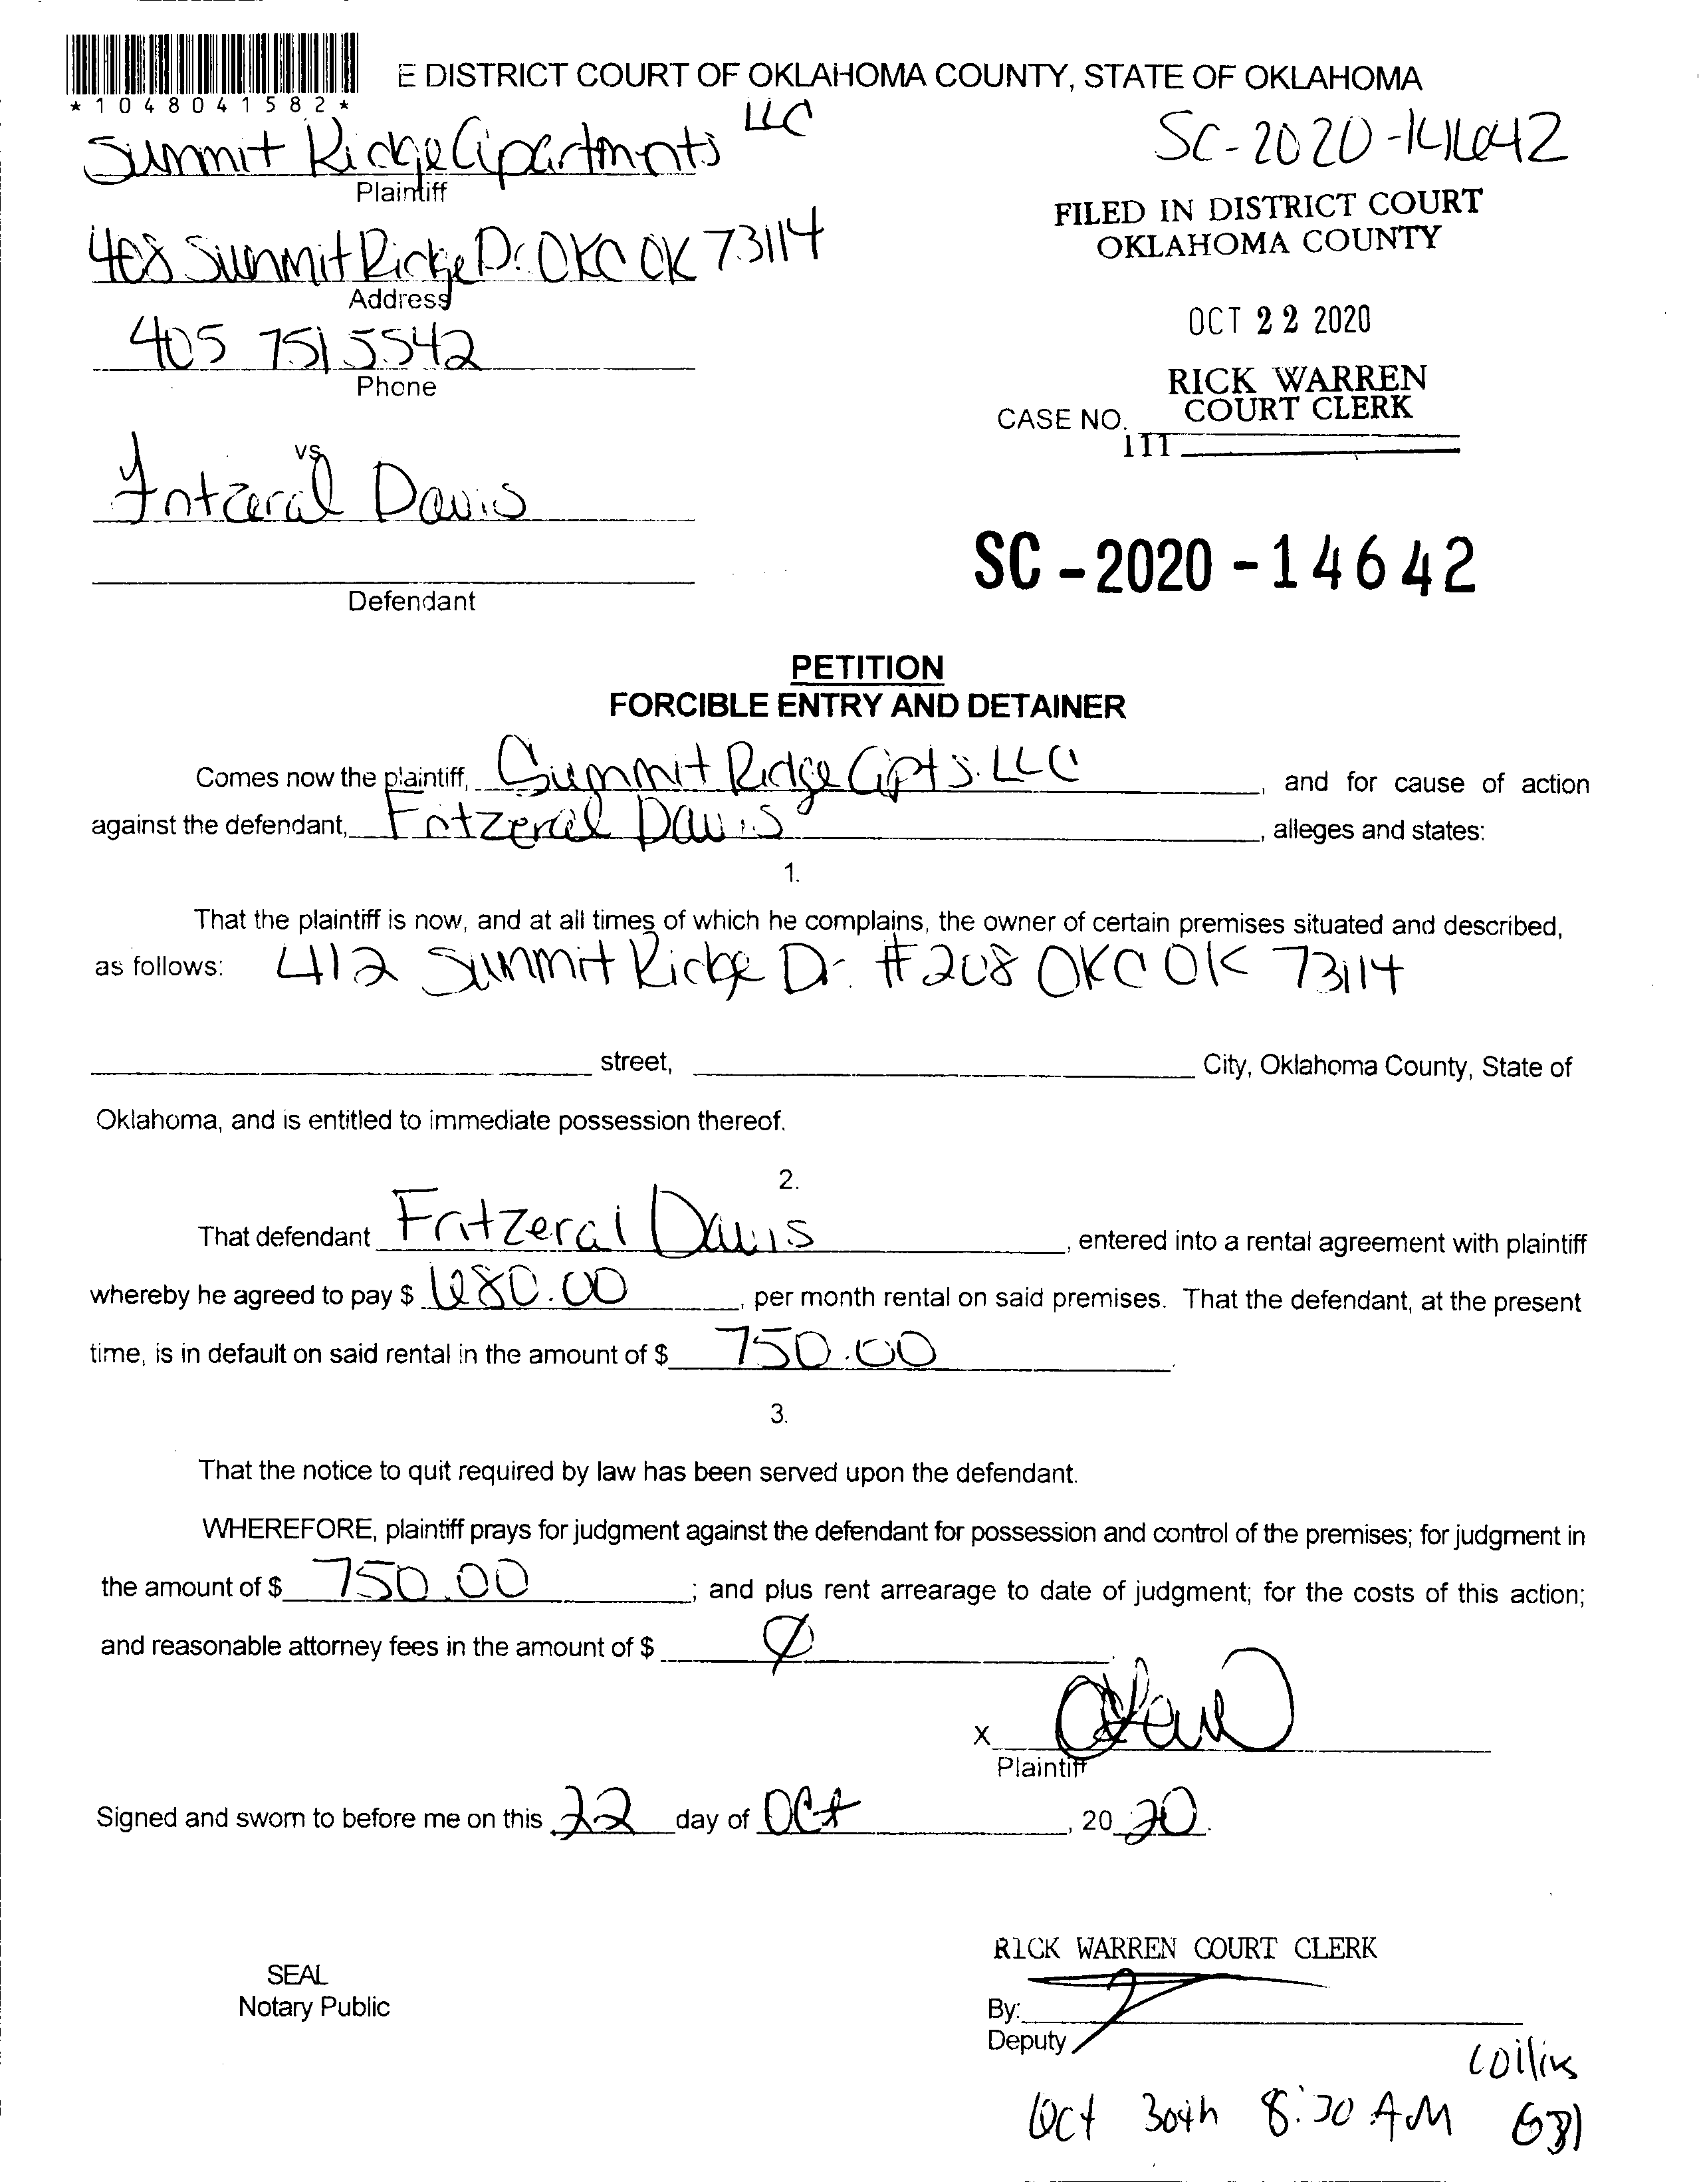 *1048041582*
E DISTRICT COURT OF OKLAHOMA COUNTY, STATE OF OKLAHOMA
Summit Ridge Apartments LLC
SC-2020-14642
Plaintiff
FILED IN DISTRICT COURT
OKLAHOMA COUNTY
408 Summit Ridge Dr. OKC OK 73114
Address
OCT 22 2020
405 751 5542
Phone
RICK WARREN
COURT CLERK
CASE NO.
111
vs
Fritzeral Davis
SC-2020-14642
Defendant
PETITION
FORCIBLE ENTRY AND DETAINER
Comes now the plaintiff, Summit Ridge Apts. LLC, and for cause of action
against the defendant, Fritzeral Davis, alleges and states:
1.
That the plaintiff is now, and at all times of which he complains, the owner of certain premises situated and described,
as follows: 412 Summit Ridge Dr. #208 OKC OK 73114
street, City, Oklahoma County, State of
Oklahoma, and is entitled to immediate possession thereof.
2.
That defendant Fritzeral Davis, entered into a rental agreement with plaintiff
whereby he agreed to pay $ 680.00, per month rental on said premises. That the defendant, at the present
time, is in default on said rental in the amount of $ 750.00.
3.
That the notice to quit required by law has been served upon the defendant.
WHEREFORE, plaintiff prays for judgment against the defendant for possession and control of the premises; for judgment in
the amount of $ 750.00; and plus rent arrearage to date of judgment; for the costs of this action;
and reasonable attorney fees in the amount of $ Ø
X
Plaintiff
Signed and sworn to before me on this 22 day of Oct, 20 20.
RICK WARREN COURT CLERK
SEAL
Notary Public
By:
Deputy
Collins
Oct 30th 8:30 AM